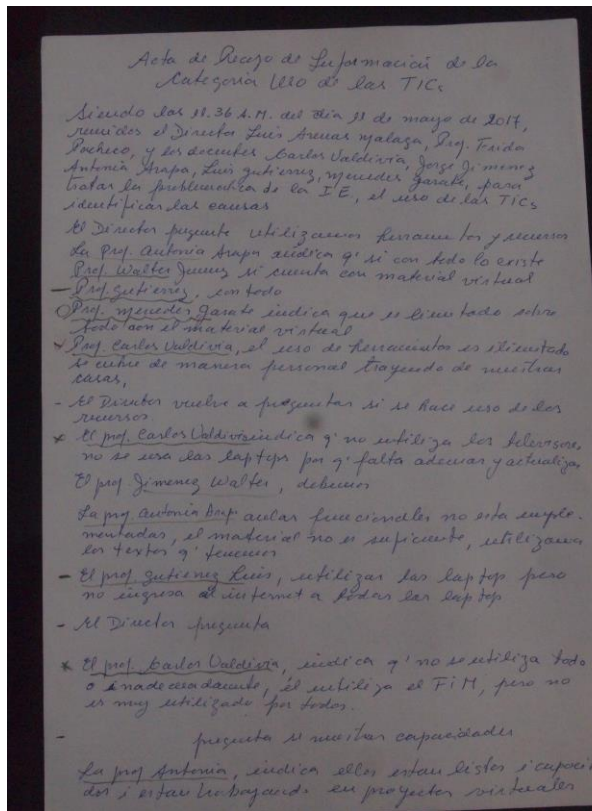 Acta de Recojo de Información de la
Categoría Uso de las TICs
Siendo las 11.36 A.M. del día 11 de mayo de 2017,
reunidos el Director Luis Arenas Malaga, Prof. Frida
Pacheco, y los docentes Carlos Valdivia, Jorge Jimenez
Antonia Arapa, Luis Gutierrez, Mercedes Garate, para
tratar la problematica de la I.E, el uso de las TICs
identificar las causas
El Director pregunta utilizamos herramientas y recursos
La Prof. Antonia Arapa indica q' si con todo lo existe
Prof. Walter Jimenez si cuenta con material virtual
- Prof. Gutierrez, con todo
Prof. Mercedes Garate indica que es limitado sobre
todo con el material virtual
x Prof. Carlos Valdivia, el uso de herramientas es
se cubre de manera personal trayendo de nuestras
casas,
- El Director vuelve a preguntar si se hace uso de los
recursos.
x El prof. Carlos Valdivia indica q' no utiliza los televisores,
no se usa las laptops por q' falta adecuar y actualizar
El prof. Jimenez Walter, debemos
La prof. Antonia aulas funcionales no esta imple-
mentadas, el material no es suficiente, utilizamos
los textos q' tenemos
- El prof. Gutierrez Luis, utilizar las laptop pero
no ingresa al internet a todas las laptop
- El Director pregunta
x El prof. Carlos Valdivia, indica q' no se utiliza todo
o inadecuadamente, él utiliza el FiM, pero no
es muy utilizado por todos.
- pregunta si nuestras capacidades
La prof Antonia, indica ellos estan listos i capaci
dos i estan trabajando en proyectos virtuales